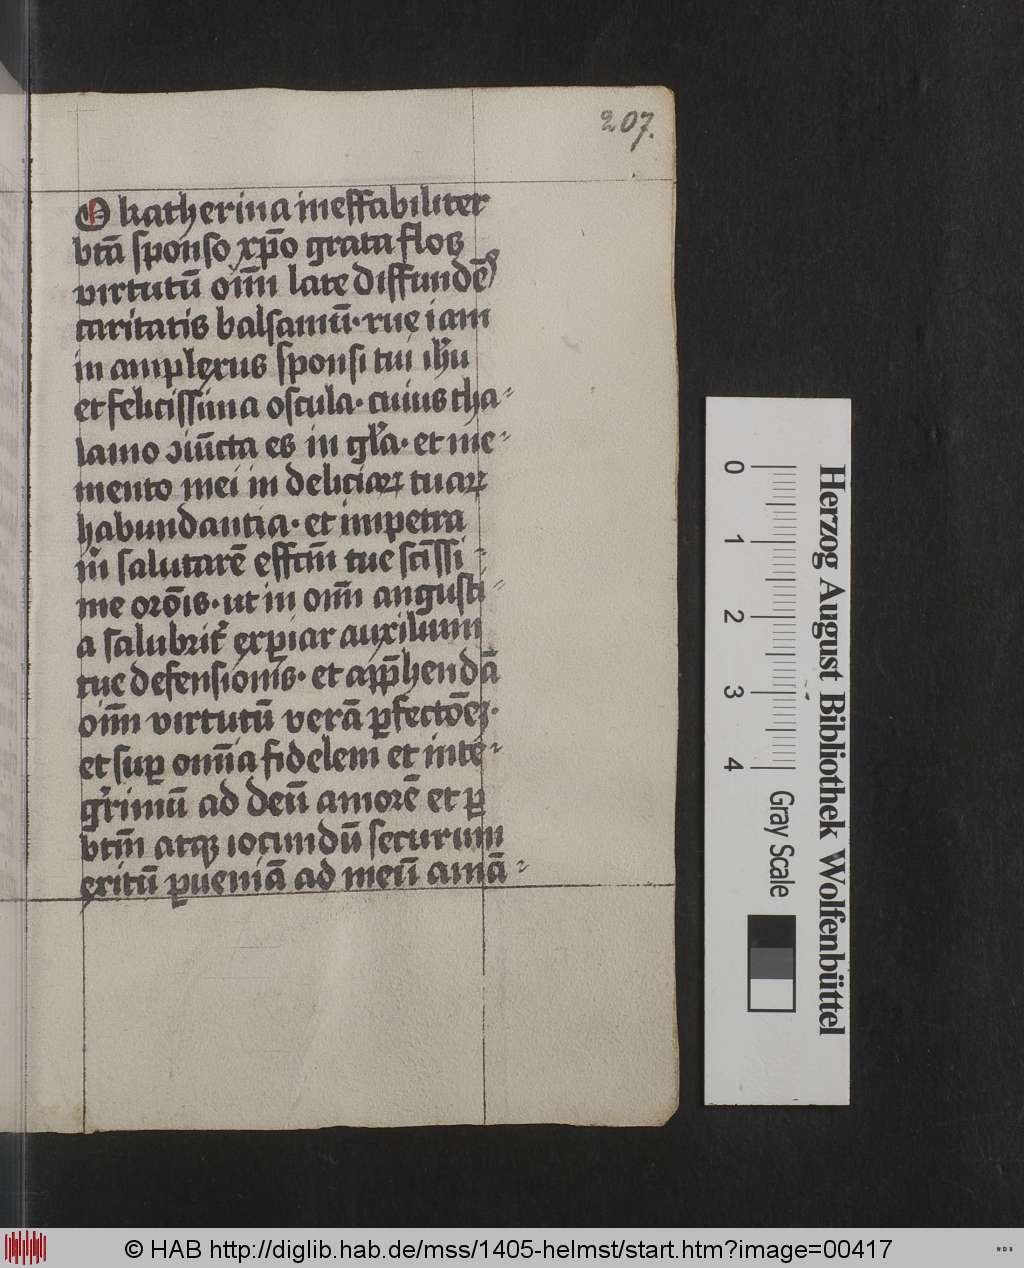 207.
O katherina ineffabiliter
btā sponso xp̄o grata flos
virtutū om̄i late diffundēs
caritatis balsamū· rue iam
in amplexus sponsi tui ih̄u
et felicissima oscula· cuius tha-
lamo ɔiūcta es in gl̄a· et me-
mento mei in deliciaꝝ tuaꝝ
habundantia· et impetra
m̄ salutarē effcm̄ tue sc̄issi-
me orōis· ut in om̄i angusti-
a salubrit᷑ exꝑiar auxilium
tue defensionis· et app̄hendā
om̄i virtutū verā ꝑfectōeꝫ·
et suꝑ om̄ia fidelem et inte-
g᷑rimū ad deū amorē et ꝑ
btm̄ atqꝫ iocundū securum
exitū ꝑueniā ad meū amā-
0 1 2 3 4
Gray Scale
Herzog August Bibliothek Wolfenbüttel
© HAB http://diglib.hab.de/mss/1405-helmst/start.htm?image=00417